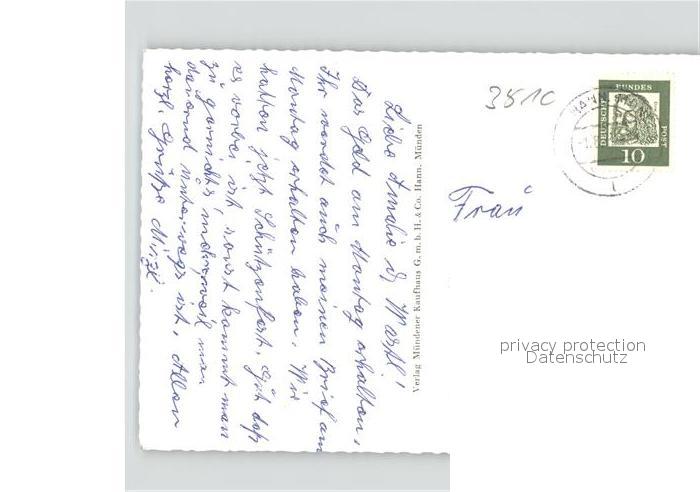 Liebe Amalie u. Wastl!
Das Geld am Montag erhalten,
Ihr werdet auch meinen Brief am
Montag erhalten haben. Wir
hatten jetzt Schützenfest. Gut daß
es vorbei ist sonst kommt man
zu garnichts, weil man
dauernd unterwegs ist. Allen
herzl. Grüße
Verlag Mündener Kaufhaus G.m.b.H. & Co. Hann. Münden
351C
Frau
DEUTSCHE
BUNDES
POST
10
privacy protection
Datenschutz